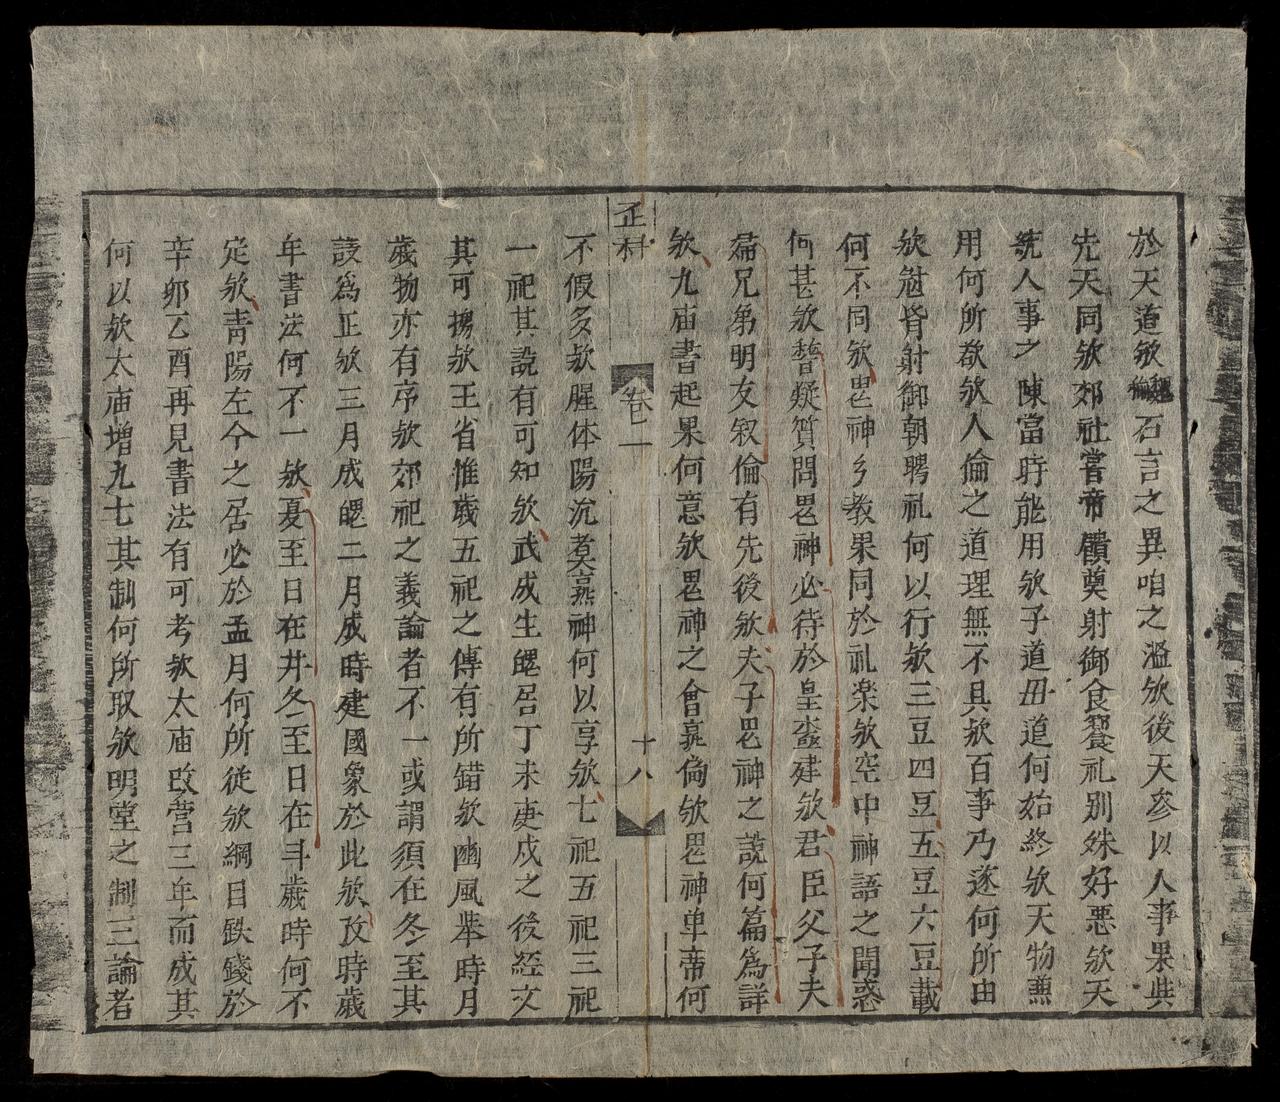 於天道欤魏榆石言之異咱之濫欤後天參以人事果與
先天同欤郊社嘗帝饋奠射御食饗礼别殊好悪欤天
統人事之陳當時能用欤子道丑道何始終欤天物無
用何所欤欤人倫之道理無不具欤百事乃遂何所由
欤冠昏射御朝聘礼何以行欤三豆四豆五豆六豆載
何不同欤神乡教果同於礼楽欤空中神語之聞惑
何甚欤疑質問神必待於皇建欤君臣父子夫
婦兄弟明友叙倫有先後欤夫子神之說何篇為詳
欤九庙書起果何意欤神之會倫欤神单帝何
正科 卷二 十八
不假多欤腥体陽沉奠神何以享欤七祀五祀三祀
一祀其説有可知欤武成生居丁未庚戌之後經文
其可據欤王省惟歲五祀之傳有所錯欤豳風举時月
歲物亦有序欤郊祀之義論者不一或謂須在冬至其
説為正欤三月成二月成時建國象於此欤攷時歲
年書法何不一欤夏至日在井冬至日在斗歲時何不
定欤青陽左个之居必於孟月何所從欤綱目鉄錢於
辛卯乙酉再見書法有可考欤太庙改营三年而成其
何以欤太庙增九七其制何所取欤明堂之制三論者